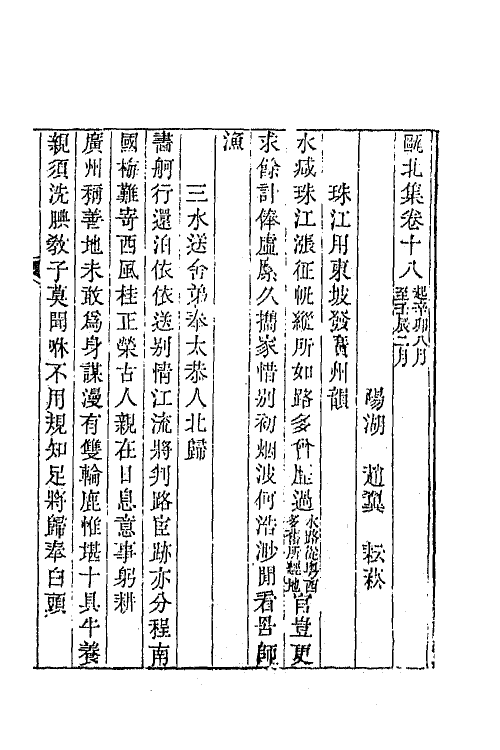 甌北集卷十八起辛卯八月至壬辰二月
陽湖　趙翼　耘菘
珠江用東坡發廣州韻
水减珠江漲征帆縱所如路多曾歷過水路從粵西多舊所經地官豈更
求餘計俸盧屢久攜家惜别初烟波何浩渺閒看罟師
漁
三水送舍弟奉太恭人北歸
書舸行還泊依依送别情江流將判路宦跡亦分程南
國梅難寄西風桂正榮古人親在日息意事躬耕
廣州稱善地未敢為身謀漫有雙輪鹿惟堪十具牛養
親須洗腆敎子莫聞咻不用規知足將歸奉白頭